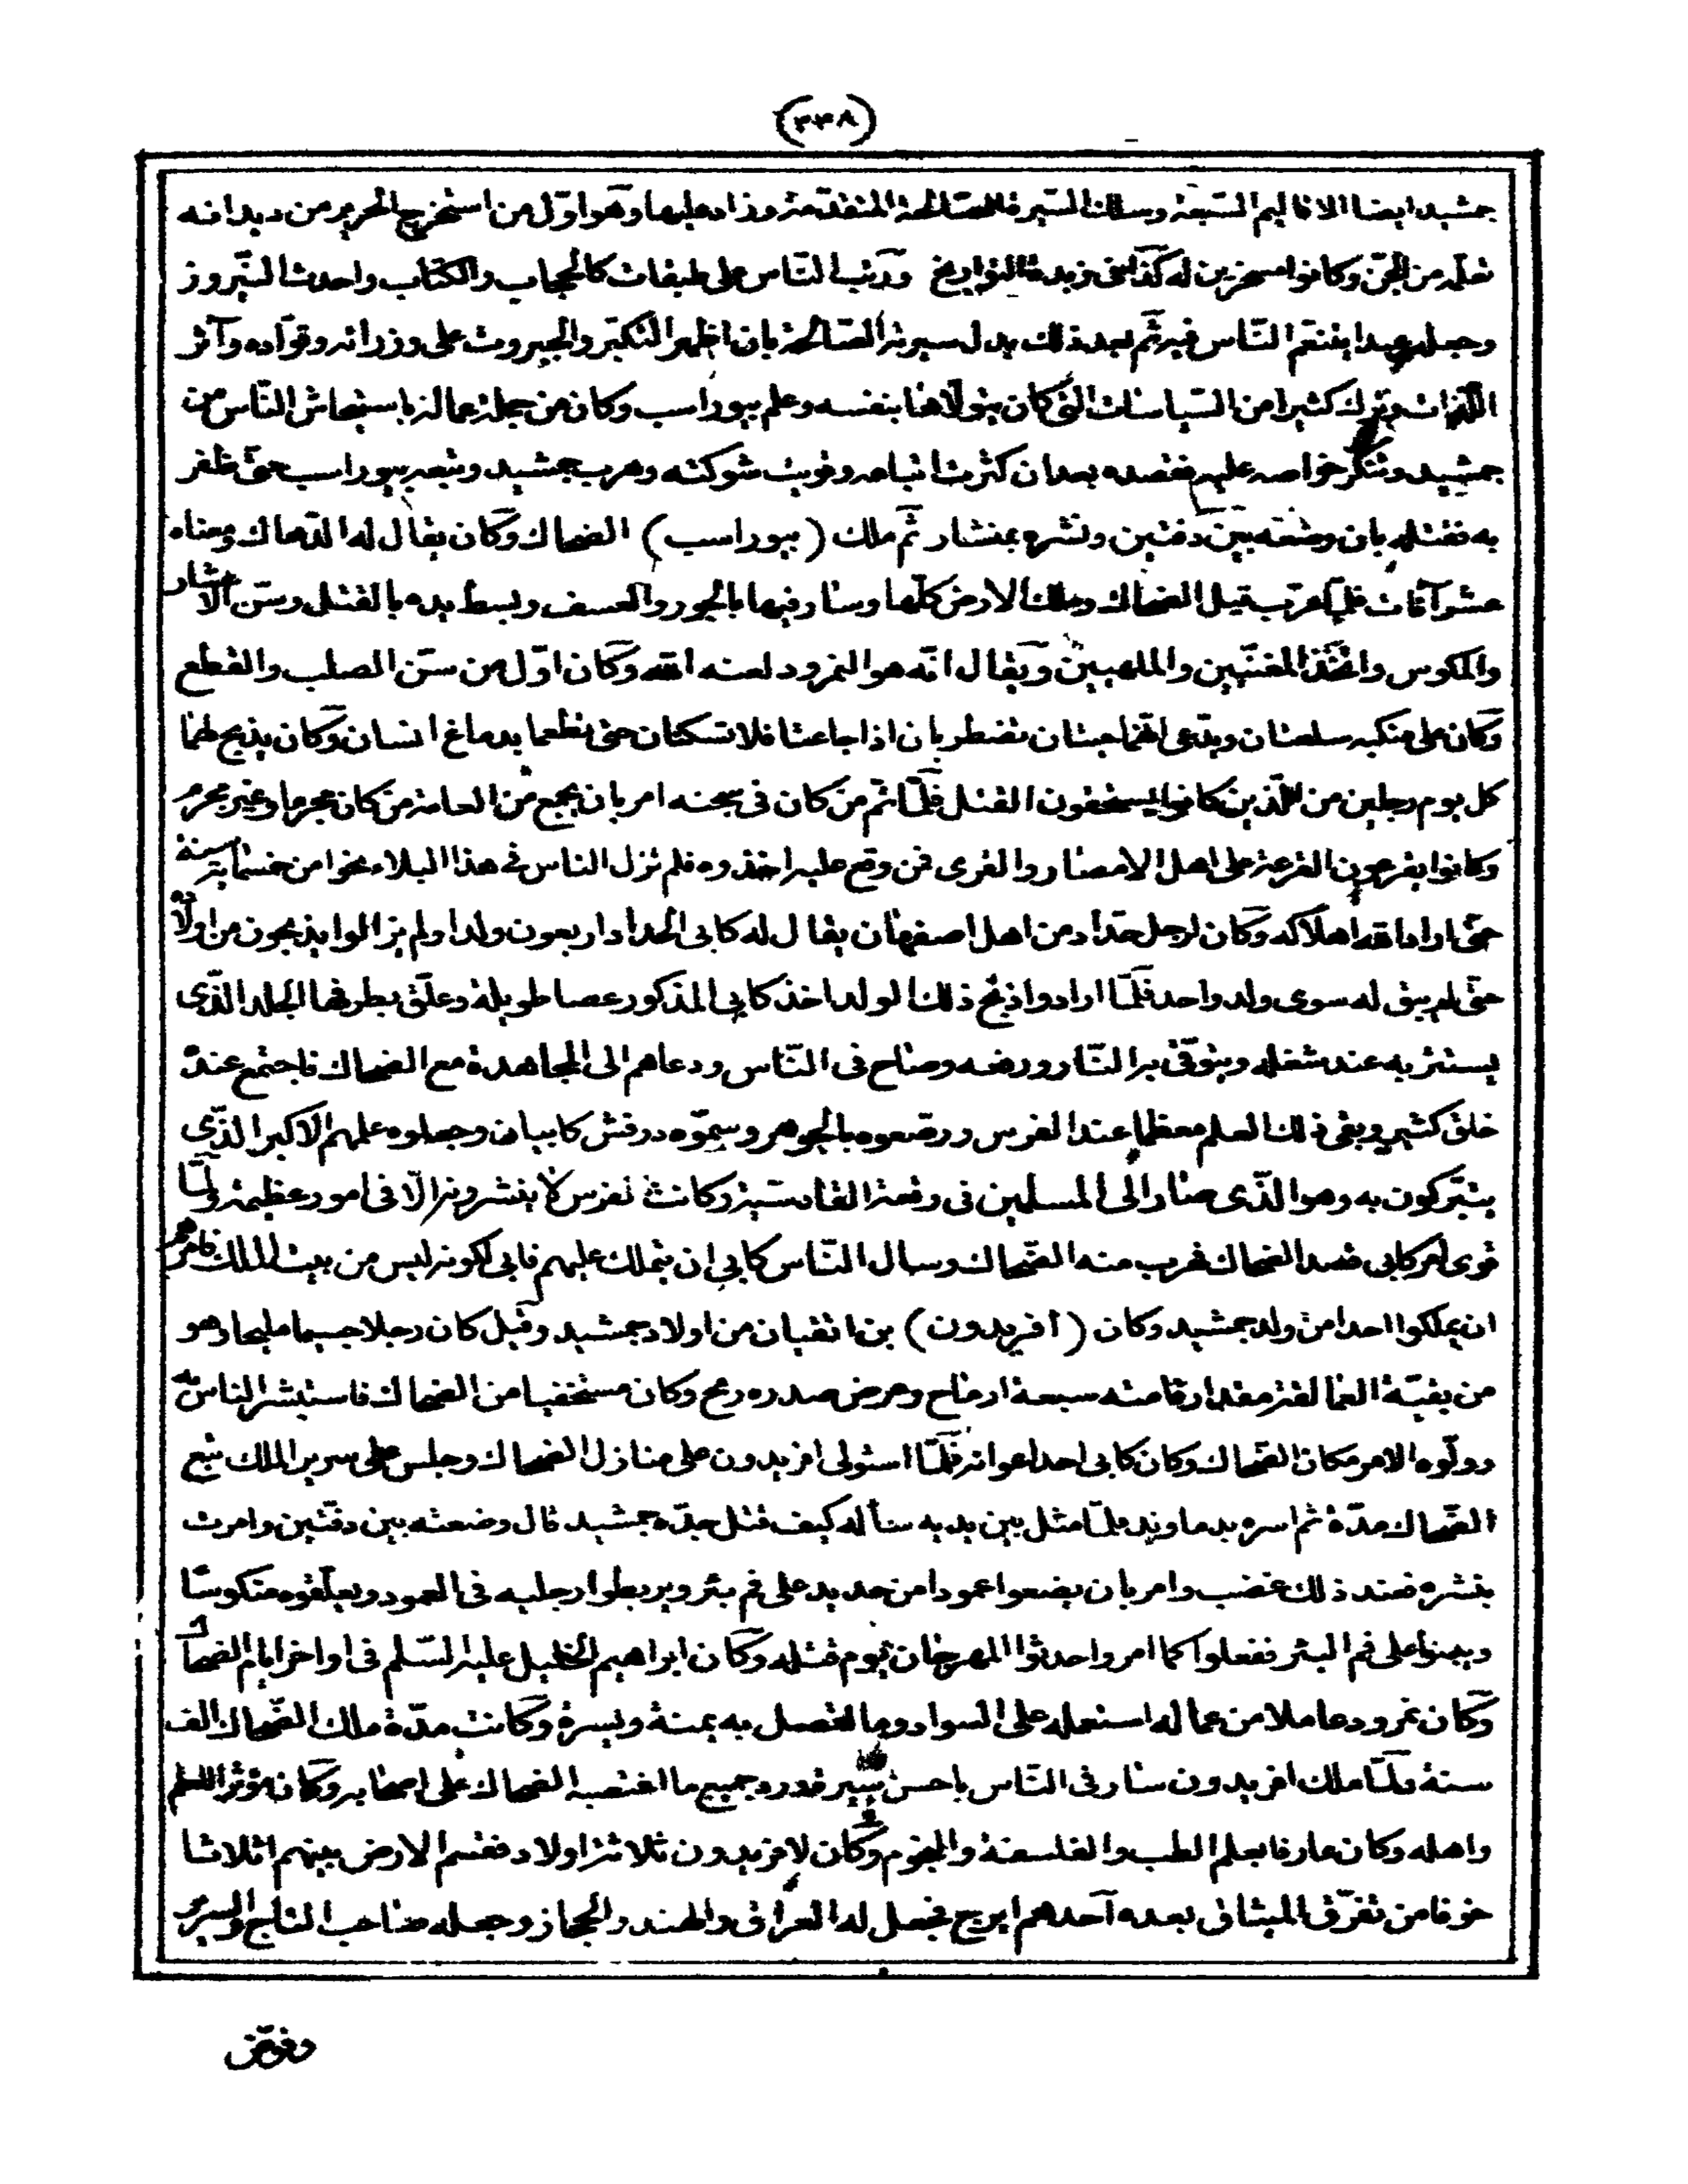 (٣٣٨)
جمشيد ايضا الاقاليم السّبعة وسلك السّيرة الصّالحة المتقدّمة وزاد عليها وهو اوّل من استخرج الحرير من ديدانه
تعلّمه من الجنّ وكانوا مسخرين له كذا فى زبدة التواريخ ورتب النّاس على طبقات كالحجاب والكتاب واحدث النّيروز
وجعله عيدا يتنعّم النّاس فيه ثمّ بعد ذلك بدل سيرته الصّالحة بان اظهر التكبّر والجبروت على وزرائه وقوّاده وآثر
اللّذات وترك كثيرا من السّياسات الّتى كان يتولّاها بنفسه وعلم بيوراسب وكان من جملة عماله باستيحاش النّاس من
جمشيد وتنكّر خواصه عليه فقصده بعد ان كثرت اتباعه وقويت شوكته وهرب جمشيد وتبعه بيوراسب حتّى ظفر
به فقتله بان وضعه بين دفتين ونشره بمنشار ثمّ ملك (بيوراسب) الضحاك وكان يقال له الدّهاك ومعناه
عشر آفات فلمّا عرّب قيل الضحاك وملك الارض كلّها وسار فيها بالجور والعسف وبسط يده بالقتل وسنّ الاعشار
والمكوس واتّخذ المغنّيين والملهيين ويقال انّه هو النمرود لعنه الله وكان اوّل من سنّ الصلب والقطع
وكان على منكبه سلعتان ويدّعى انّهما حيتان تضطربان اذا جاعتا فلا تسكنان حتى تطعما بدماغ انسان وكان يذبح لهما
كل يوم رجلين من الّذين كانوا يستحقون القتل فلمّا تمّ من كان فى سجنه امر بان يجمع من العامة من كان مجرما وغير مجرم
وكانوا يقرعون القرعة على اهل الامصار والقرى فمن وقع عليه اخذوه فلم تزل الناس فى هذا البلاء نحوا من خمسمائة سنة
حتّى اراد الله اهلاكه وكان لرجل حدّاد من اهل اصفهان يقال له كابى الحداد اربعون ولدا ولم يزالوا يذبحون من اولاده
حتّى لم يبق له سوى ولد واحد فلمّا ارادوا ذبح ذلك الولد اخذ كابى المذكور عصا طويلة وعلّق بطرفها الجلد الّذى
يستتر به عند شغله ويتوقّى به النّار ورفعه وصاح فى النّاس ودعاهم الى المجاهدة مع الضحاك فاجتمع عنده
خلق كثير وبقى ذلك العلم معظما عند الفرس ورصّعوه بالجوهر وسمّوه درفش كابيان وجعلوه علمهم الاكبر الّذى
يتبّركون به وهو الّذى صار الى المسلمين فى وقعة القادسيّة وكانت الفرس لا ينشرونه الّا فى امور عظيمة ولمّا
قوى امر كابى قصد الضحاك فهرب منه الضّحاك وسال النّاس كابى ان يتملك عليهم فابى لكونه ليس من بيت الملك فامرهم
ان يملكوا احدا من ولد جمشيد وكان (افريدون) بن اثقيان من اولاد جمشيد وقيل كان رجلا جسيما مليحا وهو
من بقيّة العمالقة مقدار قامته سبعة ارماح وعرض صدره رمح وكان مستخفيا من الضحاك فاستبشر الناس به
وولّوه الامر مكان الضّحاك وكان كابى احد اعوانه فلمّا استولى افريدون على منازل الضحاك وجلس على سرير الملك تتبع
الضّحاك مدّة ثم اسره بدماوند فلمّا مثل بين يديه سأله كيف قتل جدّه جمشيد قال وضعته بين دفّتين وامرت
بنشره فعند ذلك غضب وامر بان يضعوا عمودا من حديد على فم بئر ويربطوا رجليه فى العمود ويعلّقوه منكوسا
ويبنوا على فم البئر ففعلوا كما امر واحدثوا المهرجان يوم قتله وكان ابراهيم الخليل عليه السّلم فى اواخر ايام الضحاك
وكان نمرود عاملا من عماله استعمله على السواد وما اتصل به يمنة ويسرة وكانت مدّة ملك الضّحاك الف
سنة ولمّا ملك افريدون سار فى النّاس باحسن سيرة ورد جميع ما اغتصبه الضحاك على اصحابه وكان مؤثرا للعلم
واهله وكان عارفا بعلم الطب والفلسفة والنجوم وكان لافريدون ثلاثة اولاد فقسم الارض بينهم اثلاثا
خوفا من تفرّق الميثاق بعده آحدهم ايرج فجعل له العراق والهند والحجاز وجعله صاحب التاج والسرير
وفوّض